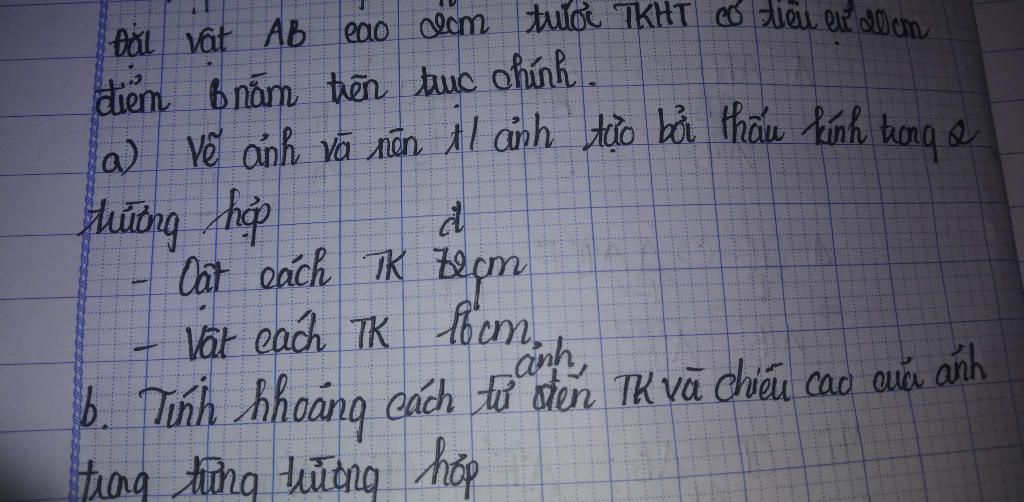 Đặt vật AB cao 2cm trước TKHT có tiêu cự 20cm
điểm B nằm trên trục chính.
a) Vẽ ảnh và nên t/ảnh tạo bởi thấu kính trong 2
trường hợp
d
- Vật cách TK cm
- Vật cách TK 16cm
ảnh
b. Tính khoảng cách từ đến TK và chiều cao của ảnh
trong từng trường hợp